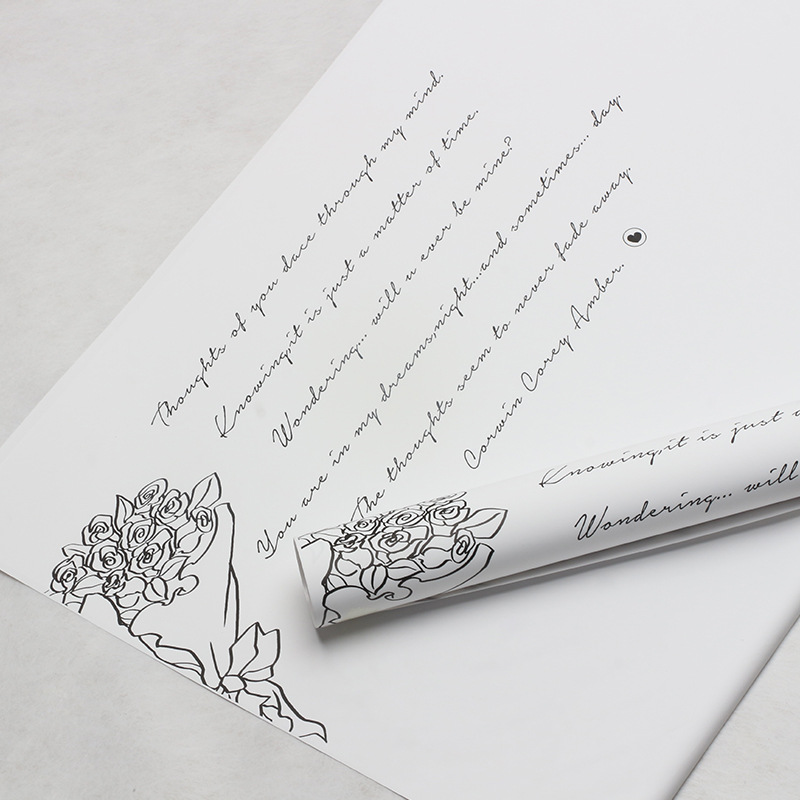 Thoughts of you dace through my mind.
Knowing,it is just a matter of time.
Wondering... will u ever be mine?
You are in my dreams,night...and sometimes... day.
The thoughts seem to never fade away.
Corwin Corey Amber.
Knowing,it is just a
Wondering... will